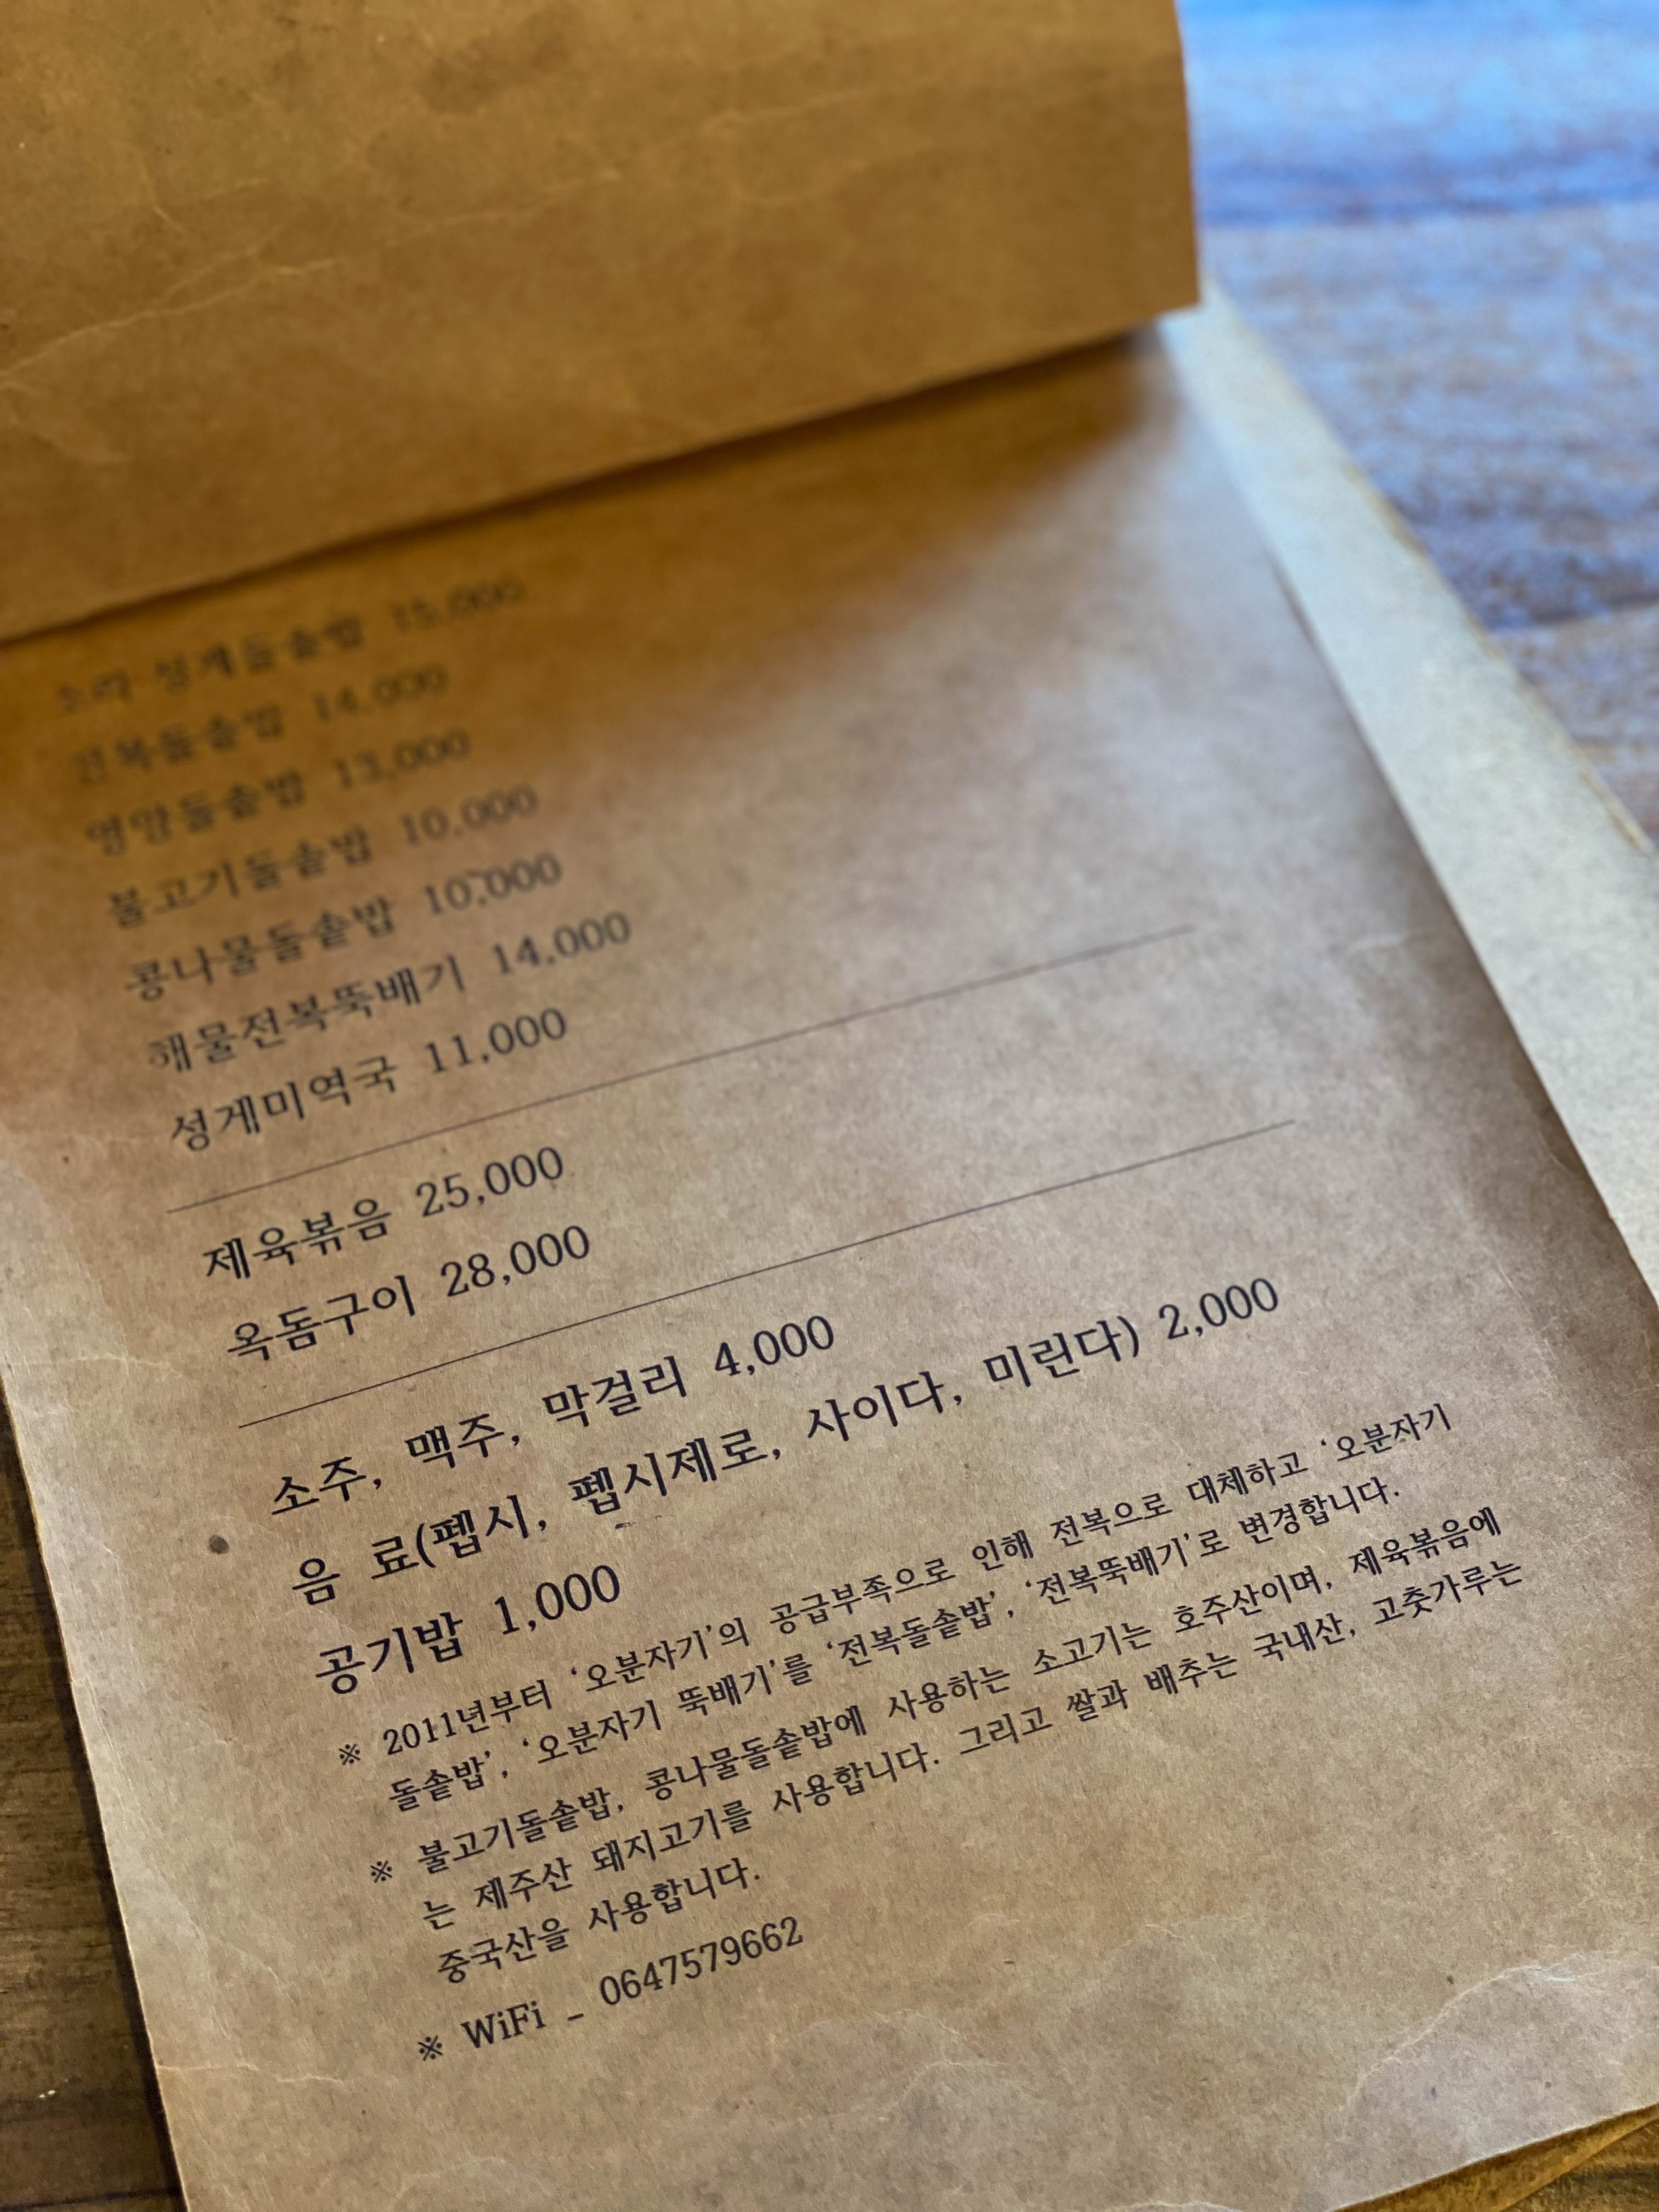 소라 성게돌솥밥 15,000
전복돌솥밥 14,000
영양돌솥밥 13,000
불고기돌솥밥 10,000
콩나물돌솥밥 10,000
해물전복뚝배기 14,000
성게미역국 11,000
제육볶음 25,000
옥돔구이 28,000
소주, 맥주, 막걸리 4,000
음 료(펩시, 펩시제로, 사이다, 미린다) 2,000
공기밥 1,000
※ 2011년부터 ‘오분자기’의 공급부족으로 인해 전복으로 대체하고 ‘오분자기
돌솥밥’, ‘오분자기 뚝배기’를 ‘전복돌솥밥’, ‘전복뚝배기’로 변경합니다.
※ 불고기돌솥밥, 콩나물돌솥밥에 사용하는 소고기는 호주산이며, 제육볶음에
는 제주산 돼지고기를 사용합니다. 그리고 쌀과 배추는 국내산, 고춧가루는
중국산을 사용합니다.
※ WiFi - 0647579662